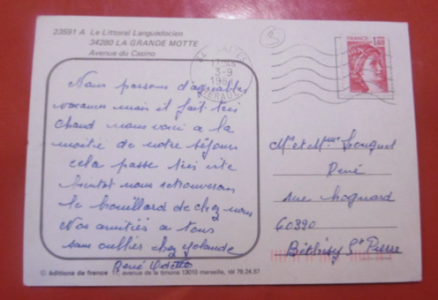 23591 A Le Littoral Languedocien
34280 LA GRANDE MOTTE
Avenue du Casino
3-9
HERAULT
FRANCE
Nous passons d'agréables
vacances mais il fait très
chaud nous voici a la
moitié de notre séjour
cela passe très vite
bientot nous retrouverons
le brouillard de chez nous
Nos amitiés a tous
sans oublier chez Yolande
René Odette
Mr et Mme
René
rue
60320
Béthisy St Pierre
© éditions de france 11, avenue de la timone 13010 marseille, tél 79.24.57